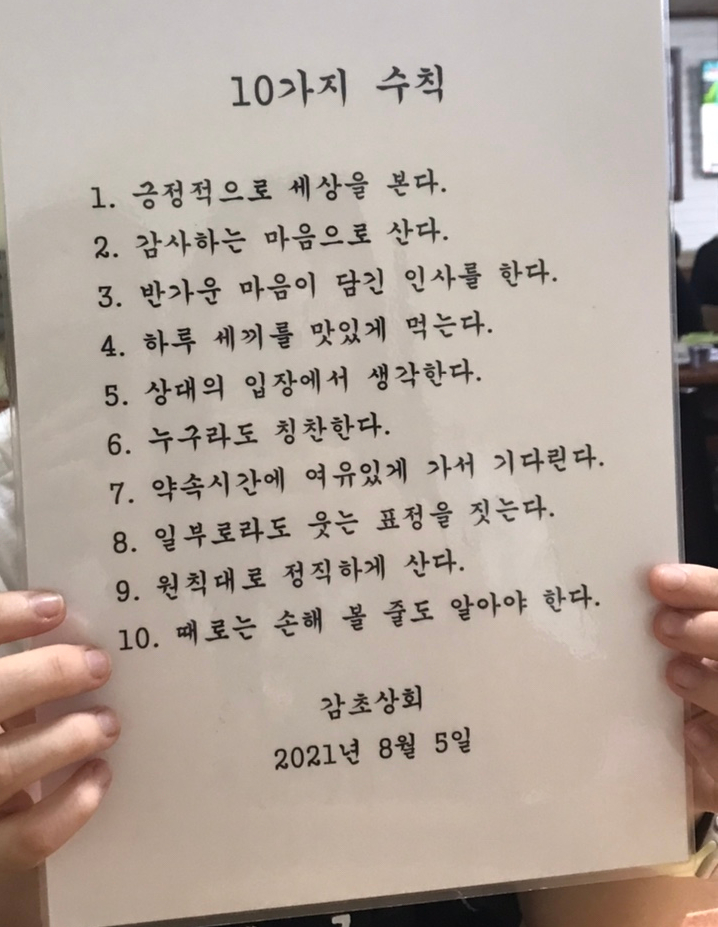 10가지 수칙
1. 긍정적으로 세상을 본다.
2. 감사하는 마음으로 산다.
3. 반가운 마음이 담긴 인사를 한다.
4. 하루 세끼를 맛있게 먹는다.
5. 상대의 입장에서 생각한다.
6. 누구라도 칭찬한다.
7. 약속시간에 여유있게 가서 기다린다.
8. 일부로라도 웃는 표정을 짓는다.
9. 원칙대로 정직하게 산다.
10. 때로는 손해 볼 줄도 알아야 한다.
감초상회
2021년 8월 5일